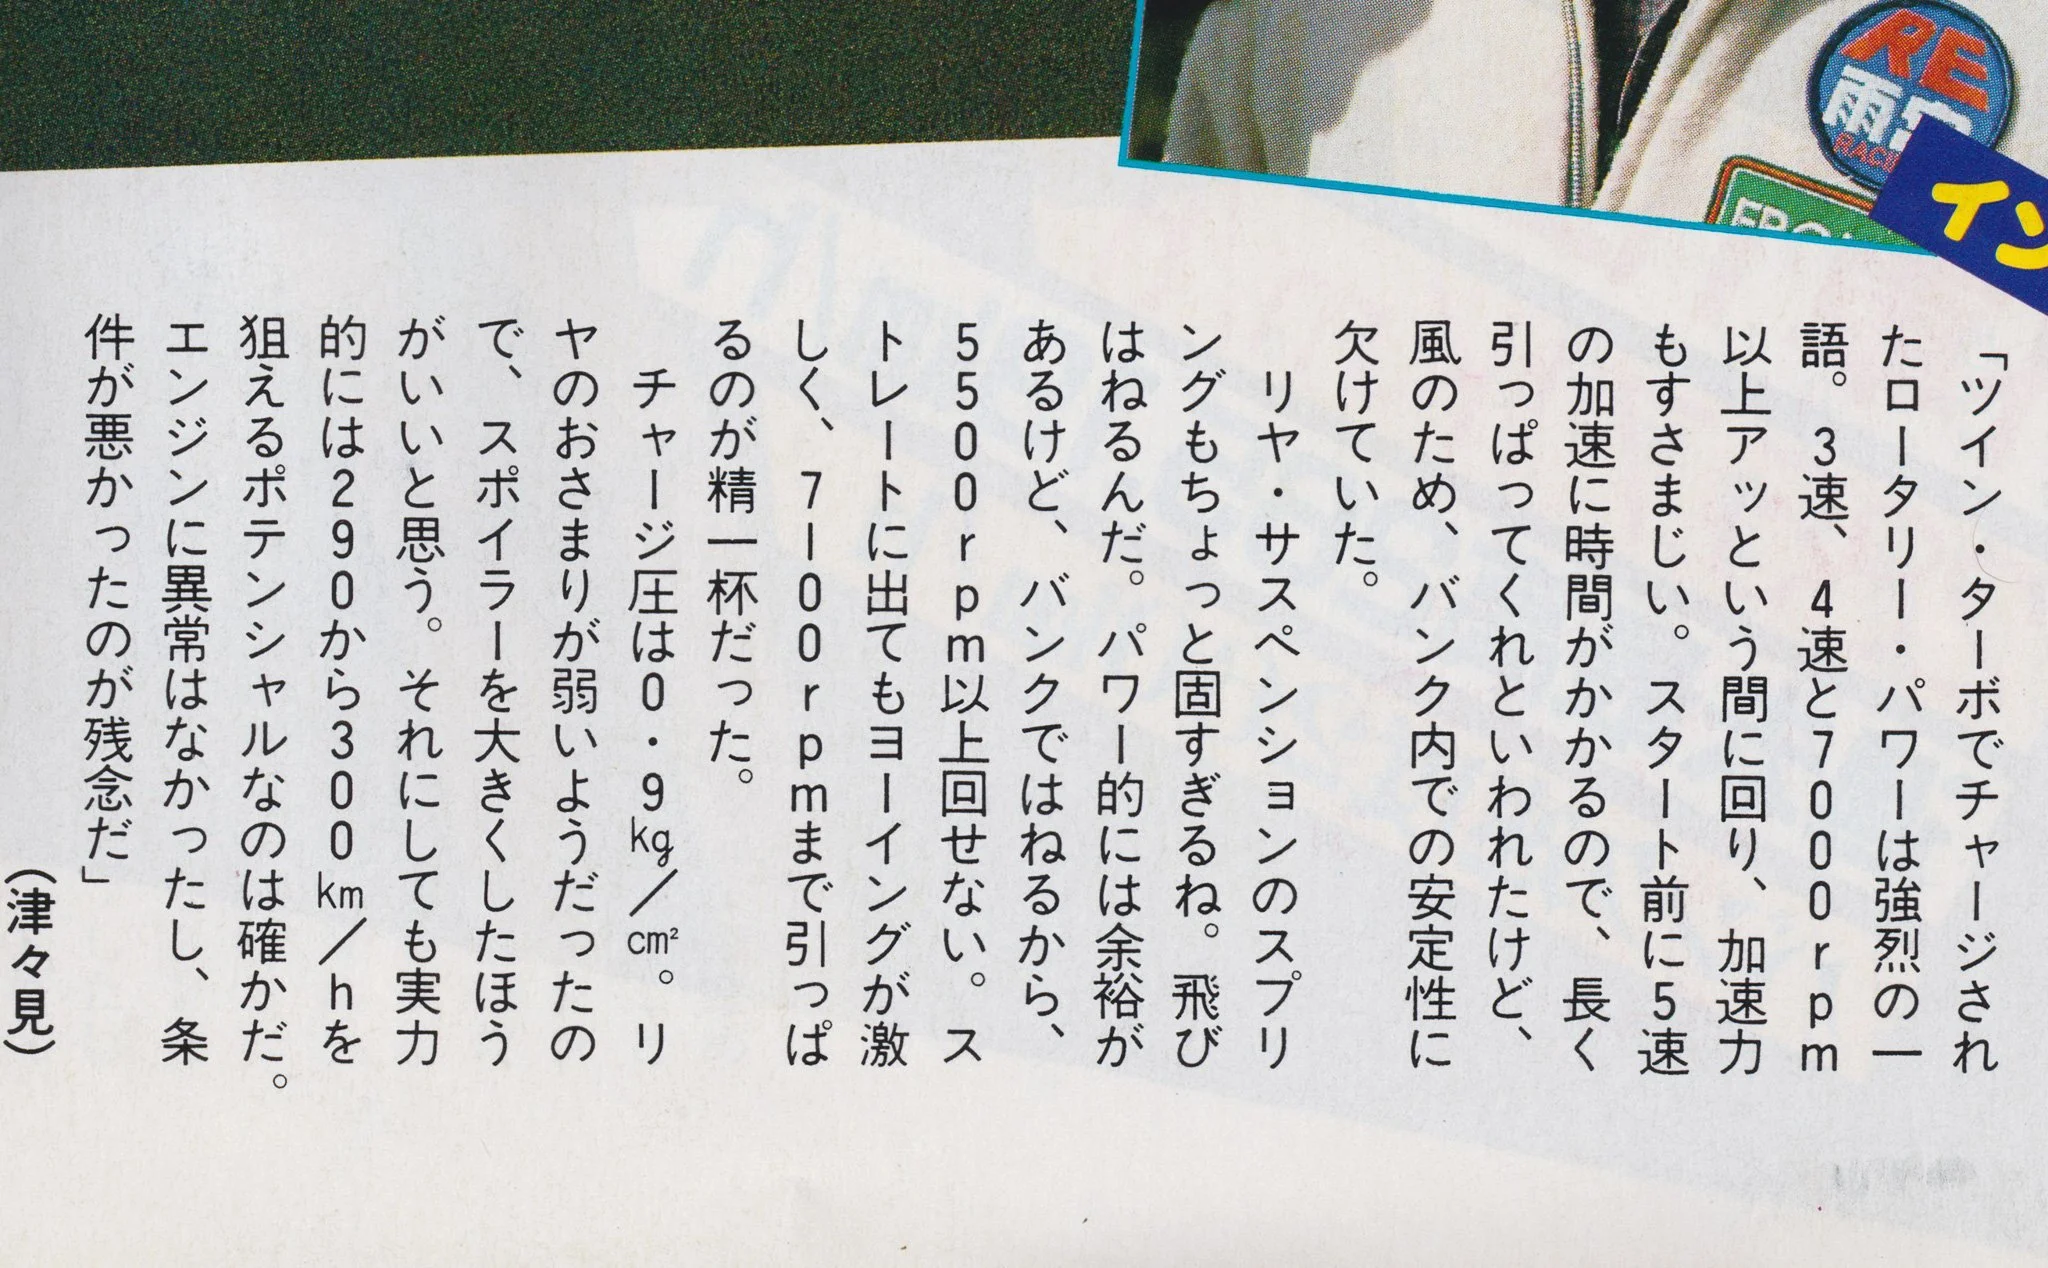 RE
雨宮
RACI
FRO
イン
「ツイン・ターボでチャージされ
たロータリー・パワーは強烈の一
語。3速、4速と7000rpm
以上アッという間に回り、加速力
もすさまじい。スタート前に5速
の加速に時間がかかるので、長く
引っぱってくれといわれたけど、
風のため、バンク内での安定性に
欠けていた。
リヤ・サスペンションのスプリ
ングもちょっと固すぎるね。飛び
はねるんだ。パワー的には余裕が
あるけど、バンクではねるから、
5500rpm以上回せない。ス
トレートに出てもヨーイングが激
しく、7100rpmまで引っぱ
るのが精一杯だった。
チャージ圧は0・9kg/cm²。リ
ヤのおさまりが弱いようだったの
で、スポイラーを大きくしたほう
がいいと思う。それにしても実力
的には290から300km/hを
狙えるポテンシャルなのは確かだ。
エンジンに異常はなかったし、条
件が悪かったのが残念だ」
(津々見)